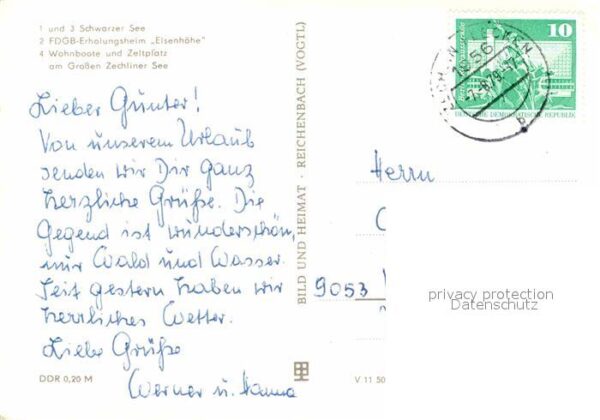 1 und 3 Schwarzer See
2 FDGB-Erholungsheim „Elsenhöhe"
4 Wohnboote und Zeltplatz
am Großen Zechliner See
Lieber Gunter!
Von unserem Urlaub
senden wir Dir ganz
herzliche Grüße. Die
Gegend ist wunderschön,
nur Wald und Wasser.
Seit gestern haben wir
herrliches Wetter.
Liebe Grüße
Werner u. Hanna
DDR 0,20 M
BILD UND HEIMAT · REICHENBACH (VOGTL)
V 11 50
10
DEUTSCHE DEMOKRATISCHE REPUBLIK
1956
Herrn
9053
privacy protection
Datenschutz